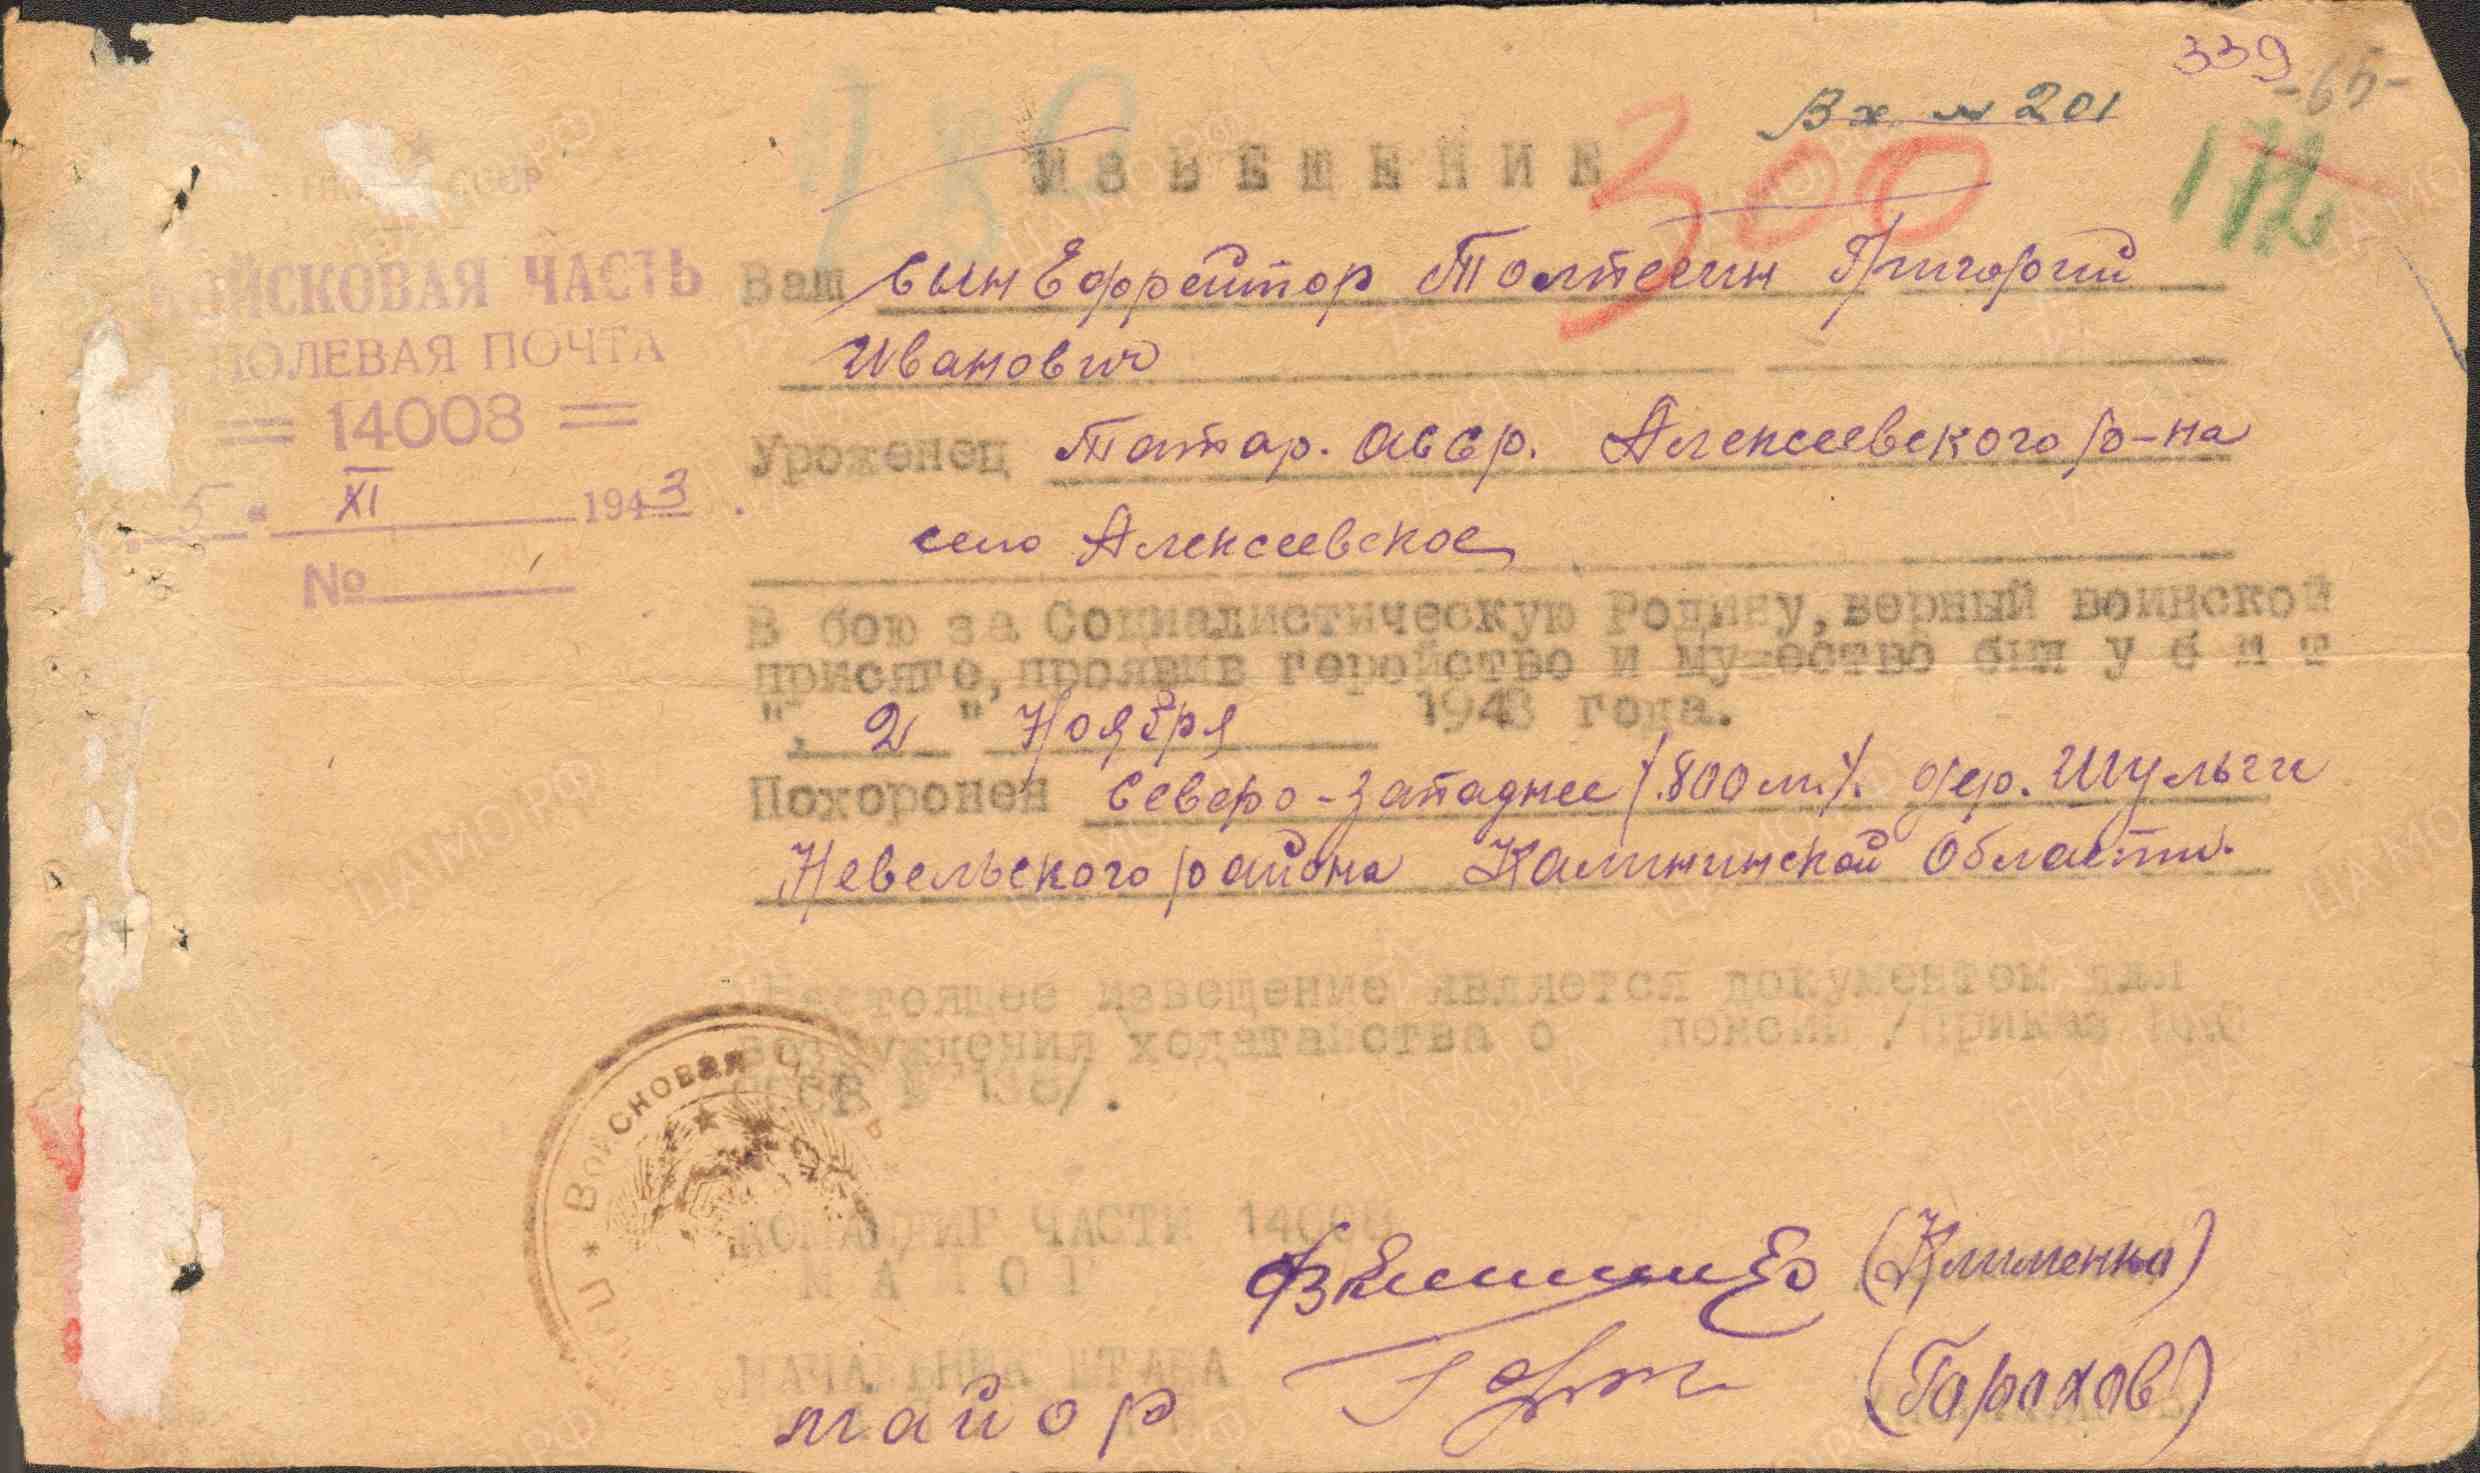 339
-65-
Вх № 201
172
300
ИЗВЕЩЕНИЕ
ВОЙСКОВАЯ ЧАСТЬ
ПОЛЕВАЯ ПОЧТА
= 14008 =
"5" XI 1943
№
Ваш сын Ефрейтор Григорий
Иванович
Уроженец Татар. АССР. Алексеевского р-на
село Алексеевское
В бою за Социалистическую Родину, верный воинской
присяге, проявив геройство и мужество был у б и т
" 2 " Ноября 1943 года.
Похоронен Северо-западнее /.800 м./. дер. Шульги
Невельского района Калининской Области.
Настоящее извещение является документом для
возбуждения ходатайства о пенсии /приказ НКО
СССР № 138/.
ВОЙСКОВАЯ ЧАСТЬ
КОМАНДИР ЧАСТИ 14008
(Клименко)
НАЧАЛЬНИК ШТАБА
майор (Горохов)